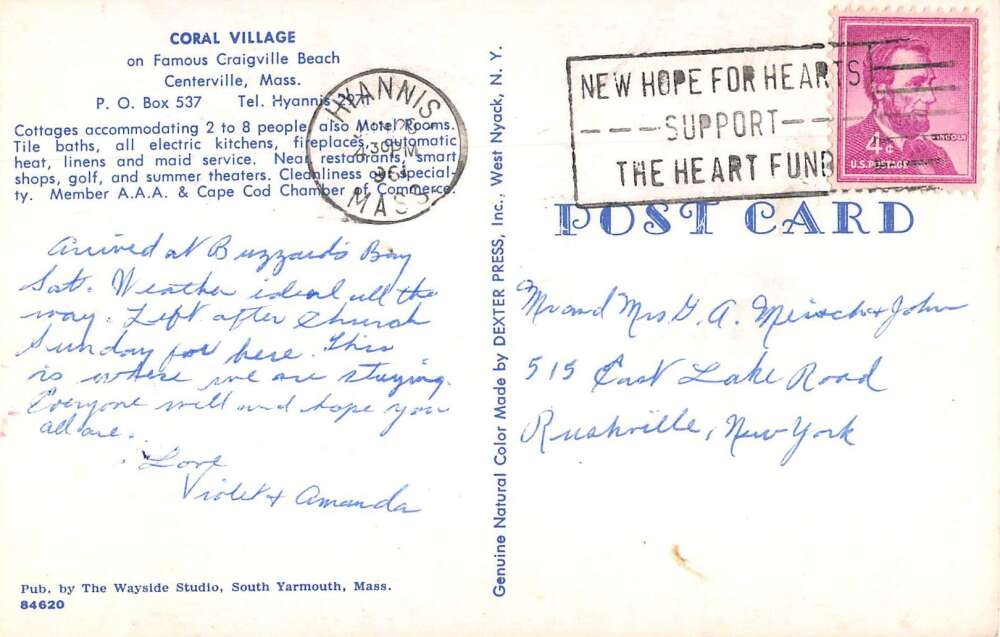 CORAL VILLAGE
on Famous Craigville Beach
Centerville, Mass.
P. O. Box 537 Tel. Hyannis
Cottages accommodating 2 to 8 people, also Motel Rooms.
Tile baths, all electric kitchens, fireplaces, automatic
heat, linens and maid service. Near restaurants, smart
shops, golf, and summer theaters. Cleanliness our special-
ty. Member A.A.A. & Cape Cod Chamber of Commerce.
HYANNIS
MASS.
NEW HOPE FOR HEARTS
SUPPORT
THE HEART FUND
LINCOLN
4¢
U.S. POSTAGE
POST CARD
Arrived at Buzzards Bay
Sat. Weather ideal all the
way. Left after Church
Sunday for here. This
is where we are staying.
Everyone well and hope you
all are.
Love
Violet + Amanda
Genuine Natural Color Made by DEXTER PRESS, Inc., West Nyack, N. Y.
Mr and Mrs G. A. + John
515 East Lake Road
Rushville, New York
Pub. by The Wayside Studio, South Yarmouth, Mass.
84620